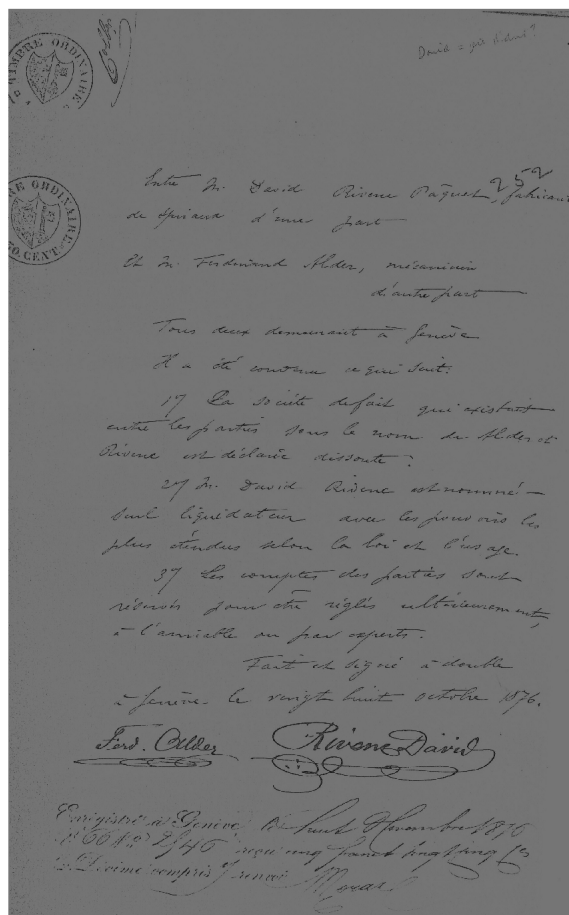 TIMBRE ORDINAIRE
252
Entre M. David Rivenc Pâquet, fabricant
de spiraux d'une part
Et M. Ferdinand Alder, mécanicien
d'autre part
Tous deux demeurant à Genève
Il a été convenu ce qui suit:
1°/ La société de fait qui existait
entre les parties sous le nom de Alder et
Rivenc est déclarée dissoute.
2°/ M. David Rivenc est nommé
seul liquidateur avec les pouvoirs les
plus étendus selon la loi et l'usage.
3°/ Les comptes des parties sont
réservés pour être réglés ultérieurement,
à l'amiable ou par experts.
Fait et signé à double
à Genève le vingt huit octobre 1876.
Ferd. Alder Rivenc David
Enregistré à Genève le huit 1876
reçu cinq francs vingt cinq ces
Décime compris